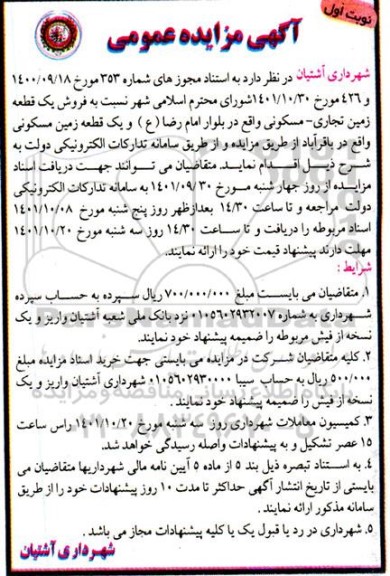 نوبت اول
آگهی مزایده عمومی
شهرداری آشتیان در نظر دارد به استناد مجوز های شماره ۳۵۳ مورخ ۱۴۰۰/۰۹/۱۸
و ۴۲۶ مورخ ۱۴۰۱/۱۰/۳۰ شورای محترم اسلامی شهر نسبت به فروش یک قطعه
زمین تجاری- مسکونی واقع در بلوار امام رضا (ع) و یک قطعه زمین مسکونی
واقع در باقرآباد از طریق مزایده و از طریق سامانه تدارکات الکترونیکی دولت به
شرح ذیل اقدام نماید. متقاضیان می توانند جهت دریافت اسناد
مزایده از روز چهار شنبه مورخ ۱۴۰۱/۰۹/۳۰ به سامانه تدارکات الکترونیکی
دولت مراجعه و تا ساعت ۱۴/۳۰ بعدازظهر روز پنج شنبه مورخ ۱۴۰۱/۱۰/۰۸
اسناد مربوطه را دریافت و تا ساعت ۱۴/۳۰ روز سه شنبه مورخ ۱۴۰۱/۱۰/۲۰
مهلت دارند پیشنهاد قیمت خود را ارائه نمایند.
شرایط :
۱. متقاضیان می بایست مبلغ ۷۰۰/۰۰۰/۰۰۰ ریال سپرده به حساب سپرده
شهرداری به شماره ۰۱۰۵۶۰۲۹۳۲۰۰۷ نزد بانک ملی شعبه آشتیان واریز و یک
نسخه از فیش مربوطه را ضمیمه پیشنهاد خود نمایند.
۲. کلیه متقاضیان شرکت در مزایده می بایستی جهت خرید اسناد مزایده مبلغ
۵۰۰/۰۰۰ ریال به حساب سیبا ۰۱۰۵۶۰۲۹۳۰۰۰۰ شهرداری آشتیان واریز و یک
نسخه از فیش را ضمیمه پیشنهاد خود نمایند.
۳. کمیسیون معاملات شهرداری روز سه شنبه مورخ ۱۴۰۱/۱۰/۲۰ راس ساعت
۱۵ عصر تشکیل و به پیشنهادات واصله رسیدگی خواهد شد.
۴. به استناد تبصره ذیل بند ۵ از ماده ۵ آیین نامه مالی شهرداریها متقاضیان می
بایستی از تاریخ انتشار آگهی حداکثر تا مدت ۱۰ روز پیشنهادات خود را از طریق
سامانه مذکور ارائه نمایند.
۵. شهرداری در رد یا قبول یک یا کلیه پیشنهادات مجاز می باشد.
شهرداری آشتیان